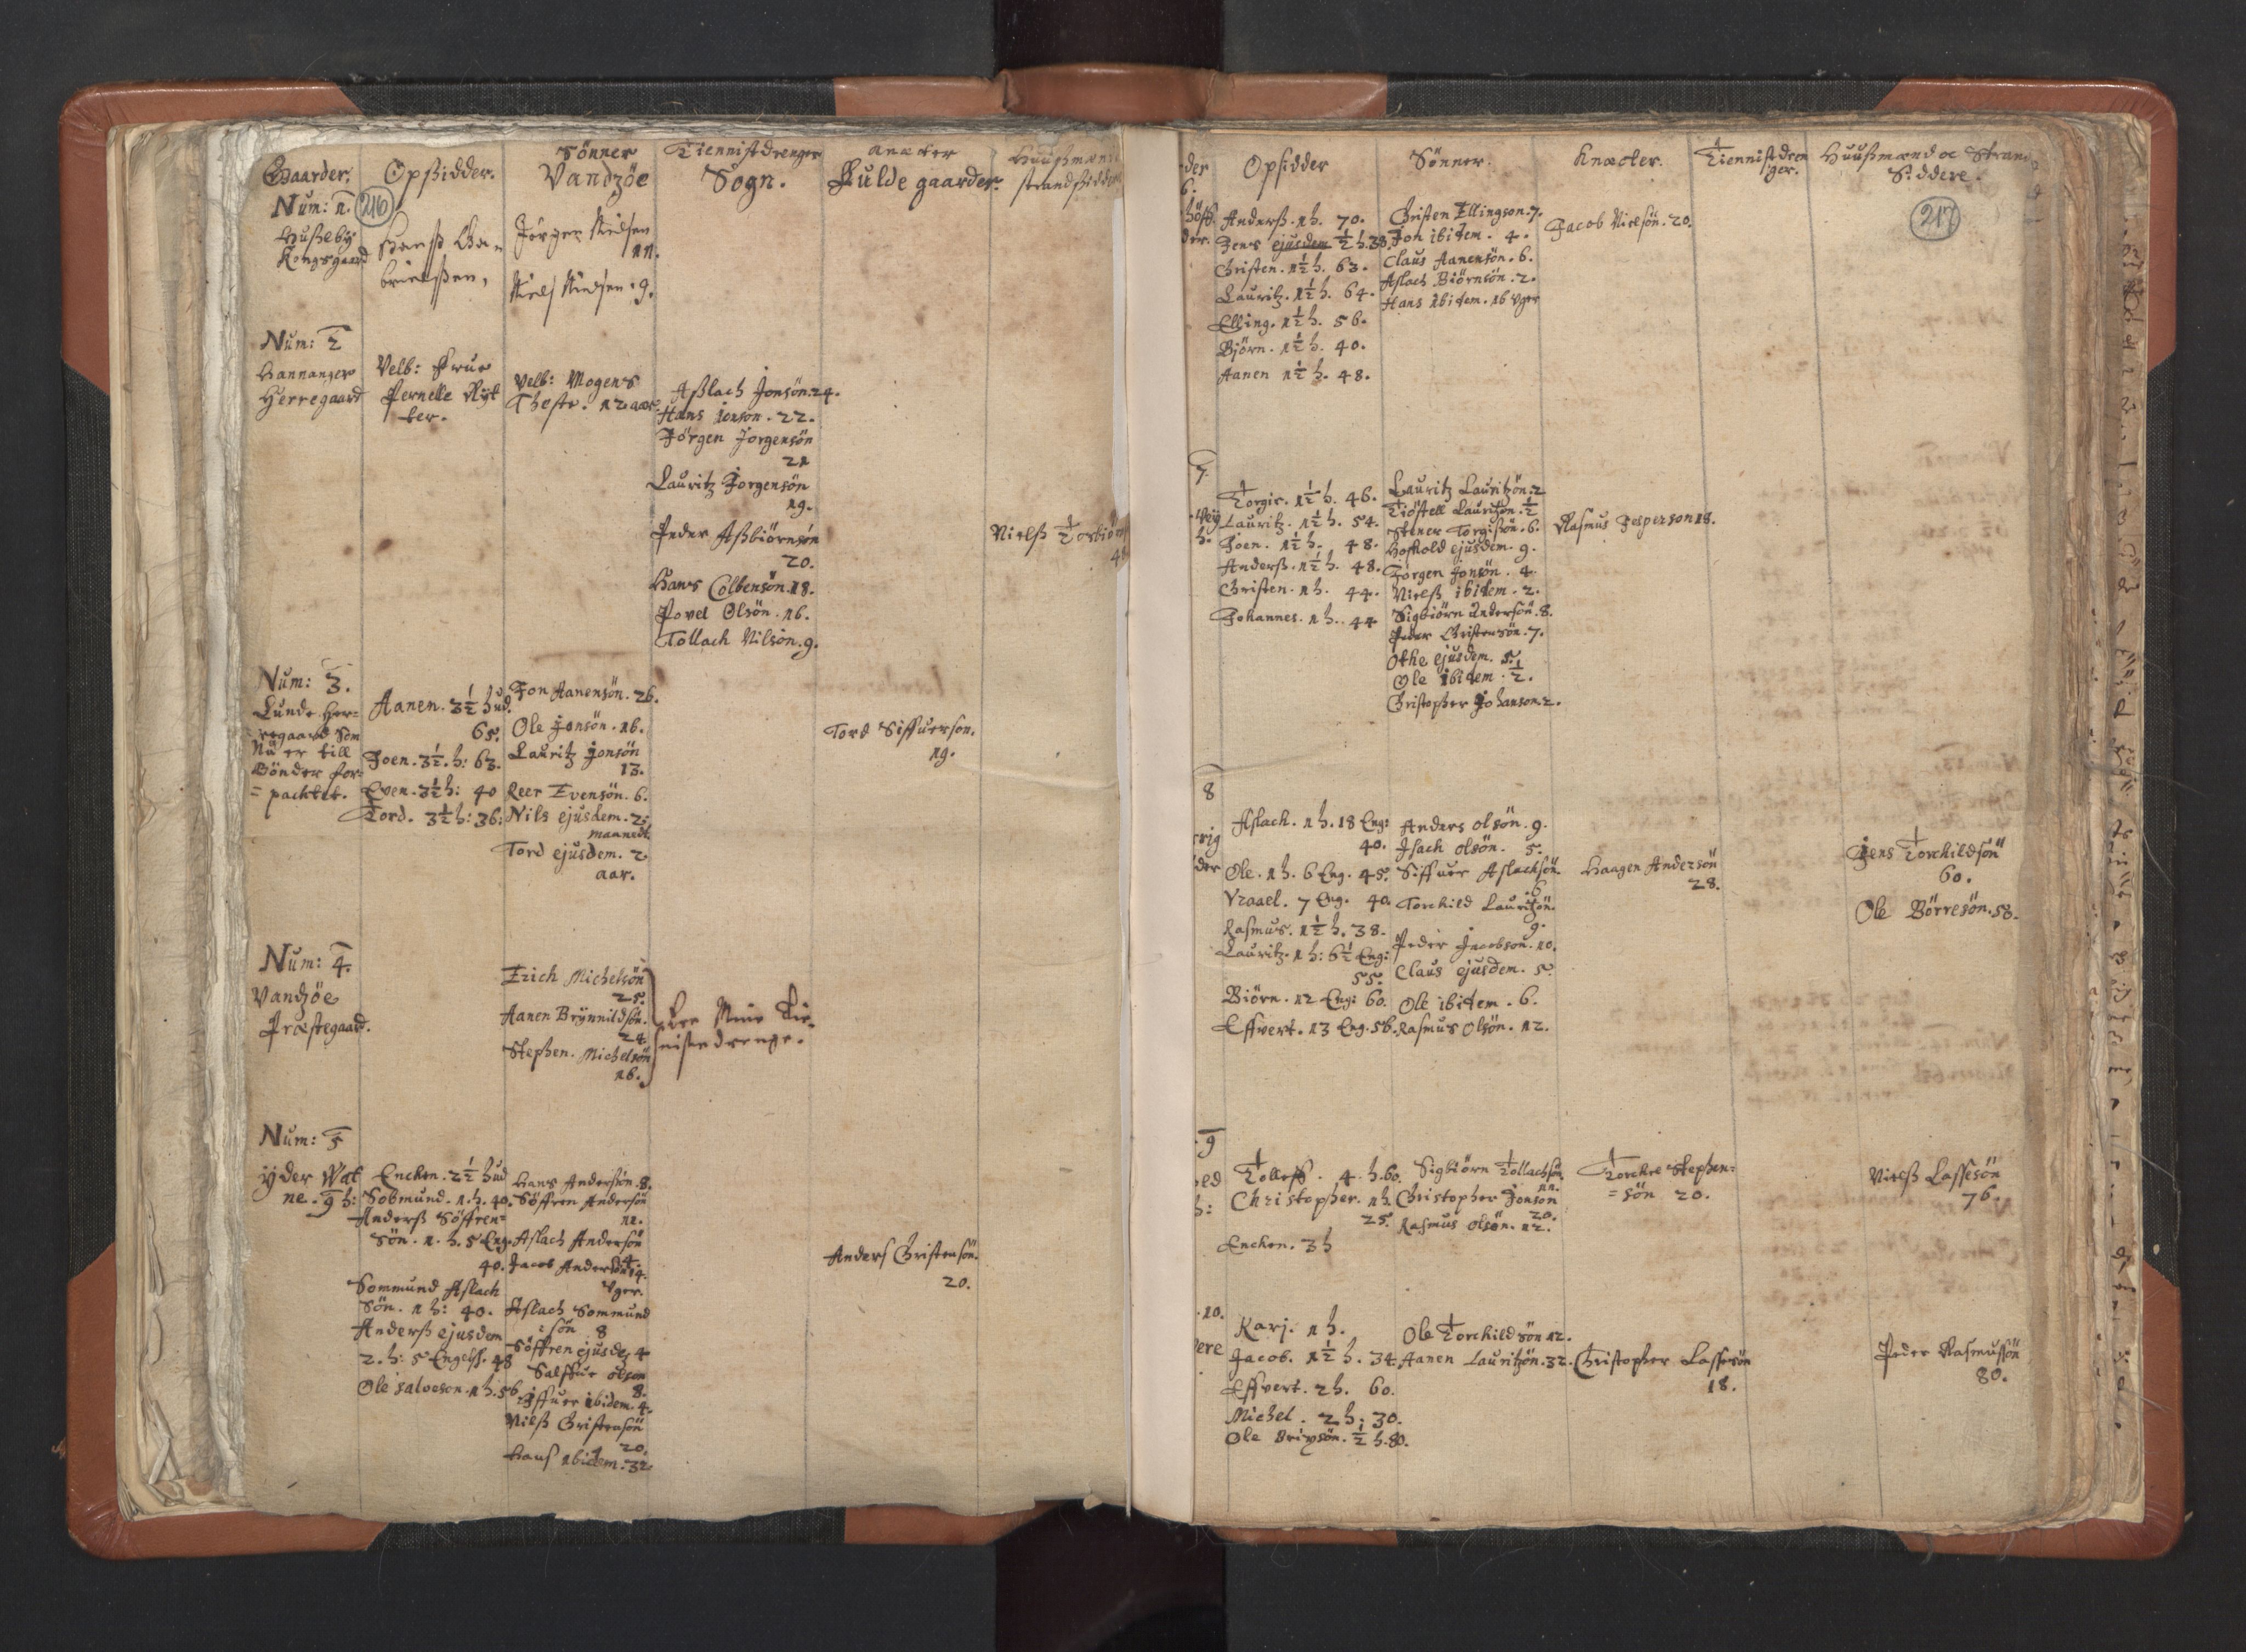 Gaarder.
Opsidder.
Sönner
Tiennistdrenger
Knæcter
Huußmænd
Vandzöe
Sogn.
Fulde gaarder.
strandsidder
Num: 1.
216
Hußeby
Kongsgaard
Hanß Ga-
brielßen,
Jörgen Nielsen
11.
Niels Nielsen. 9.
Num: 2
Hannanger
Herregaard
Velb: Frue
Pernelle Ryt
ter.
Velb: Mogens
Theste. 12 aar
Aßlach Jonsön. 24.
Hans Jonson. 22.
Jörgen Jorgensön
21
Lauritz Jorgensön
19.
Peder Aßbiörnsön
20.
Hans Colbensön. 18.
Povel Olsön. 16.
Tollach Nilsön. 9.
Nielß Torbiörn
Num: 3.
Lunde Her-
regaard Som
Nu er till
Bönder for-
= packtet.
Aanen. 3½ hud.
65.
Joen. 3½. h: 63.
Even. 3½ h: 40
Tord. 3½ h: 36:
Jon Aanensön. 26.
Ole Jonsön. 16.
Lauritz Jonsön
13.
Reer Evensön. 6.
Nils ejusdem. 2.
maaneder
Tord ejusdem. 2
aar.
Tord Siffuerson.
19.
Num: 4.
Vandzöe
Præstegaard.
Erich Michelsön
25.
Aanen Brynnildsön.
24
Stephen. Michelsön
16.
Ere Mine Tie-
nistedrenge.
Num: 5
Yder Wat
ne. 9 h:
Encken. 2½ hud
Sobmund. 1. h. 40.
Anderß Söffren-
Sön. 1. h. 5 Eng.
40.
Sommund Aslach
Sön. 1 h: 40.
Anderß ejusdem
2. h: 5 Engelß. 48
Ole Salveson. 1 h. 56
Hans Andersön. 8.
Söffren Andersön
11.
Aslach Andersön
Jacob Andersön 14.
Vger.
Aslach Sommund
: sön 8
Söffren ejusde, 4
Salffue olson
8.
Siffuer ibidem. 4.
Nielß Christensön
20.
Hans ibidem. 32.
Anders Christensön.
20.
Opsidder
Sönner.
Knæcter.
Tiennistdren
ger.
Huußmænd oc Strand
Siddere.
217
der
6.
Anderß. 1 h. 70.
Jens ejusdem ½ h. 38.
Christen. 1½ h. 63.
Lauritz. 1½ h. 64.
Elling. 1½ h. 56.
Björn. 1½ h. 40.
Aanen 1½ h. 48.
Christen Ellingson. 7.
Jon ibidem. 4.
Claus Aanensön. 6.
Aslach Biörnsön. 2.
Hans ibidem. 16 Vger
Jacob Nielsön. 20.
7.
Torgis. 1½ h. 46.
Lauritz. 1½ h. 54.
Joen. 1½ h. 48.
Anderß. 1½ h. 48.
Christen. 1 h. 44.
Johannes. 1 h. 44
Lauritz Lauritzön. 2
Tiöstell Lauritzön. ½
Stener Torgißön. 6.
Hoskold ejusdem. 9.
Jörgen Jonsön. 4
Nielß ibidem. 2.
Sigbiörn Andersön. 8.
Peder Christensön. 7.
Othe ejusdem. 5.
Ole ibidem. ½.
Christopher Johanson. 2.
Rasmus Jesperson 18.
8
Aslach. 1 h. 18 Eng:
40.
Ole. 1 h. 6 Eng. 45.
Vraael. 7 Eng. 40.
Rasmus. 1½ h. 38.
Lauritz. 1 h: 6½ Eng:
55.
Biörn. 12 Eng: 60.
Effvert. 13 Eng. 56.
Anders olsön. 9.
Isach olsön. 5.
Siffuer Aslachsön
.6
Torchild Lauritzön.
9.
Peder Jacobson. 10.
Claus ejusdem. 5.
Ole ibidem. 6.
Rasmus Olsön. 12.
Haagen Andersön
28.
Jens Torchildsön
60.
Ole Börresön. 58.
9
Tolleff. 4. h. 60.
Christopher. 1 h
25.
Encken. 3 h
Sigbiörn Tollachsön
11.
Christopher Jonson
20.
Rasmus olsön. 12.
Torckel Stephen-
= sön 20.
Nielß Lassesön
76.
10.
Karj. 1 h.
Jacob. 1½ h. 34
Effvert. 2 h. 60.
Michel. 2 h: 30.
Ole ½ h. 80.
Ole Torchildsön 12.
Aanen Lauritzön. 32.
Christopher Lassesön
18.
Peder Rasmußön
80.